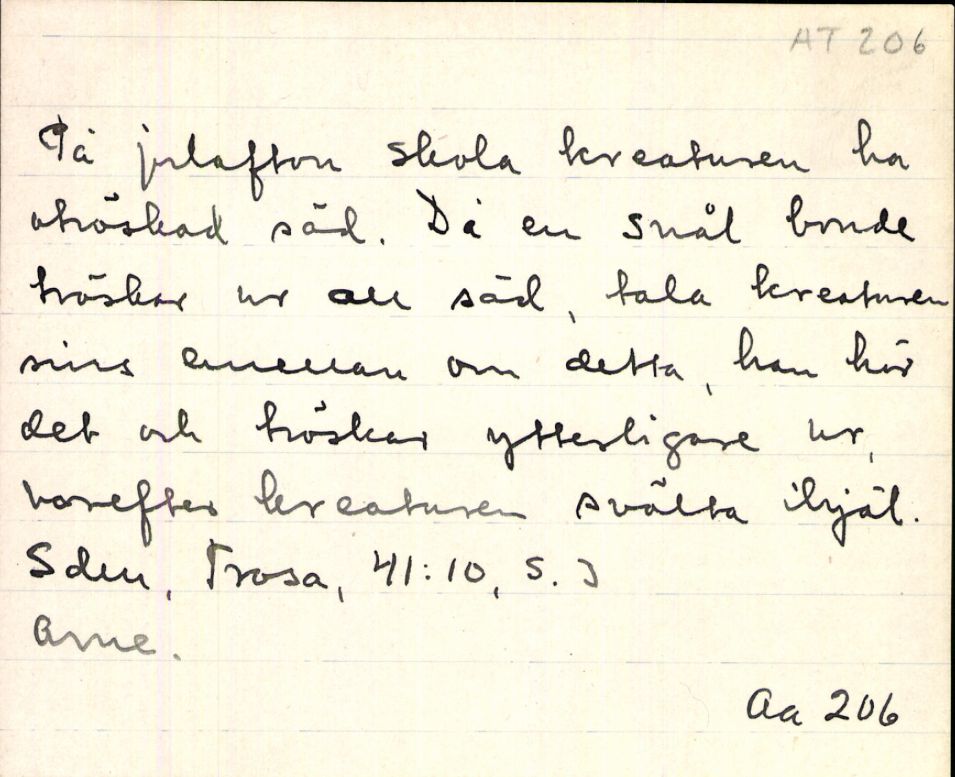 AT 206
På julafton skola kreaturen ha
otröskad säd. Då en snål bonde
tröskar ur all säd, tala kreaturen
sins emellan om detta, han hör
det och tröskar ytterligare ur,
varefter kreaturen svälta ihjäl.
Sdm, Trosa, 41:10, S. 3
Arne.
Aa 206